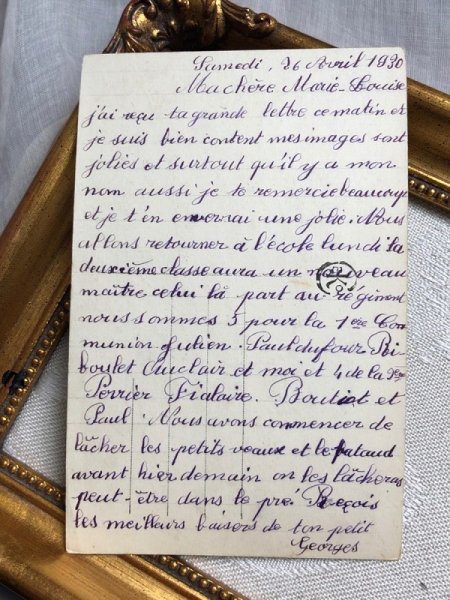 Samedi, 26 Avril 1930
Machère Marie-Louise
j'ai reçu ta grande lettre ce matin et
je suis bien content mes images sont
jolies et surtout qu'il y a mon
nom aussi je te remercie beaucoup
et je t'en enverrai une jolie. Nous
allons retourner à l'école lundi la
deuxième classe aura un nouveau
maître celui là part au régiment
nous sommes 5 pour la 1ère Com
munion Julien. Paul dufour Ri
boulet Auclair et moi et 4 de la 2e
Perrier Fialaire. Boutiot et
Paul. Nous avons commencer de
lâcher les petits veaux et le pataud
avant hier demain on les lâcheras
peut-être dans le pre. Reçois
les meilleurs baisers de ton petit
Georges